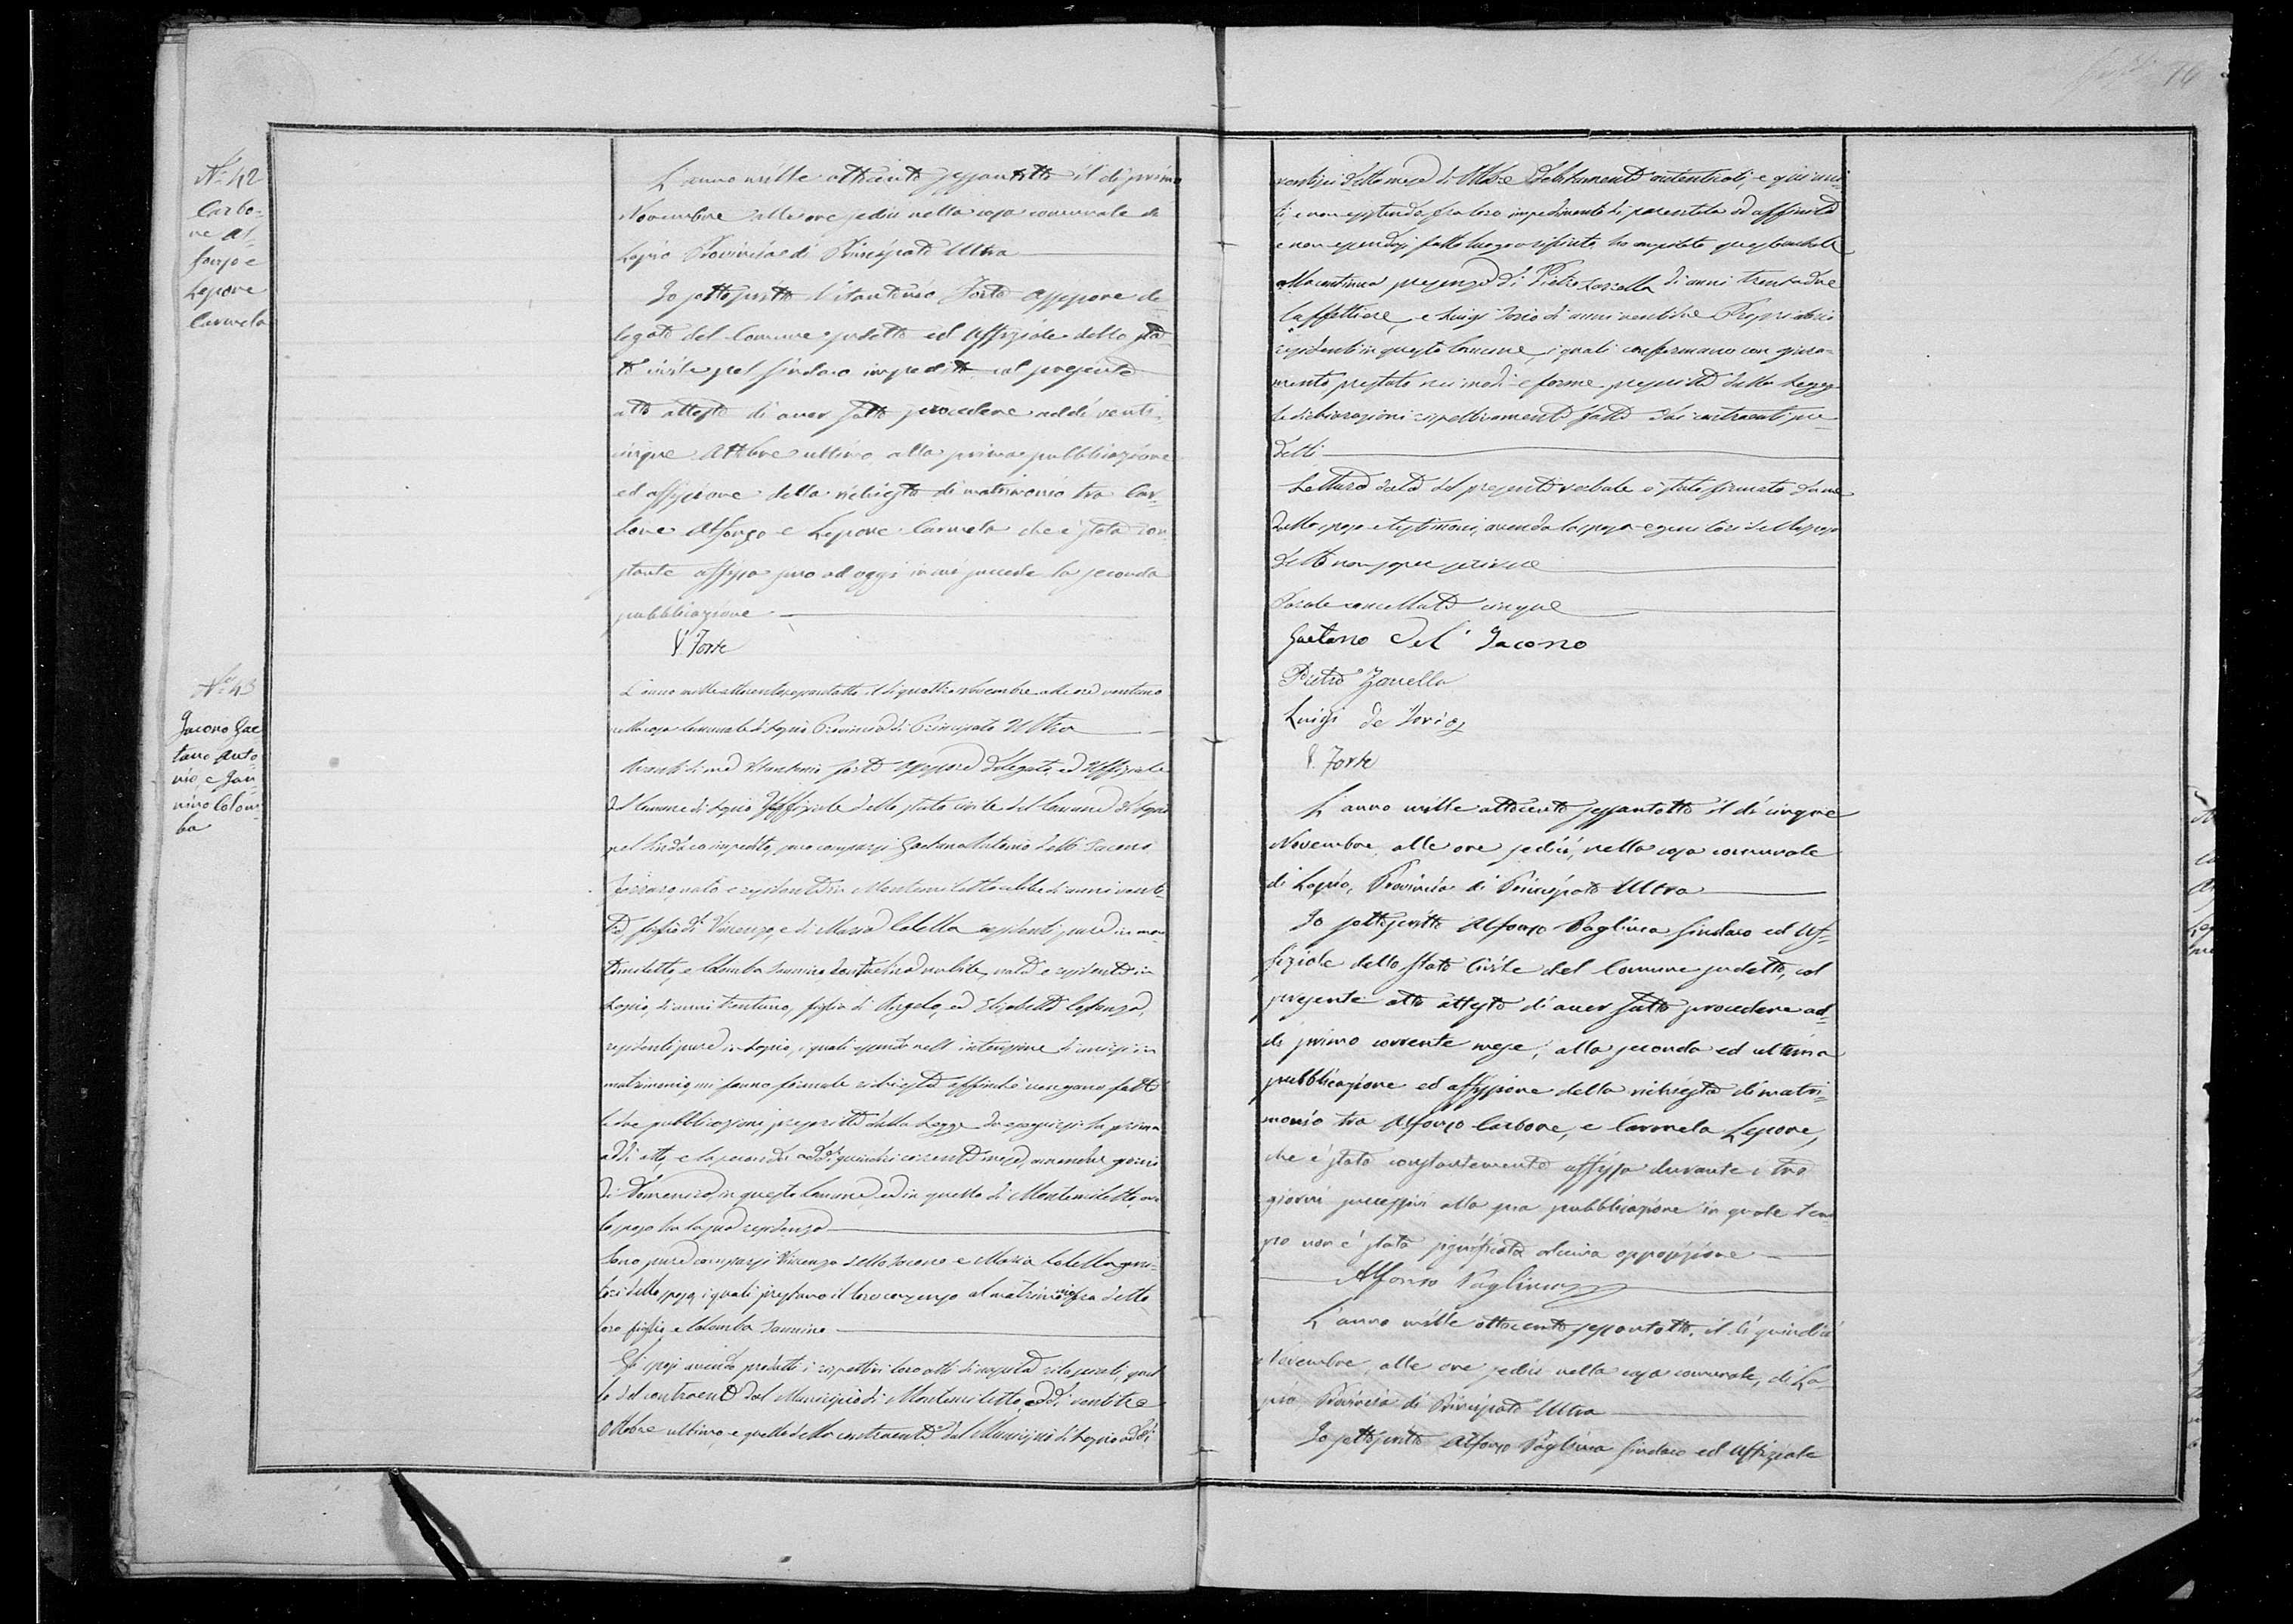 N.° 42
Carbo=
ne Al=
fonzo e
Lepore
Carmela
L'anno mille ottocento sessantotto il dì primo
Novembre alle ore sedici nella casa comunale di
Lapio Provincia di Principato Ultra
Io sottoscritto Vitantonio Forte Assessore de=
legato del Comune sudetto ed Uffiziale dello sta=
to civile pel Sindaco impedito, col presente
atto attesto di aver fatto procedere addì venti=
cinque Ottobre ultimo alla prima pubblicazione
ed affissione della richiesta di matrimonio tra Car=
bone Alfonzo e Lepore Carmela che è stata con
stante affissa sino ad oggi in cui succede la seconda
pubblicazione
V. Forte
N.° 43
Jacono Gae
tano Anto
nio, e Jan
nino Colom
ba
L'anno mille ottocento sessantotto il dì quattro Novembre alle ore ventuno
nella casa Comunale di Lapio Provincia di Principato Ultra
Avanti di me Vitantonio Forte Assessore Delegato, ed Uffiziale
del Comune di Lapio Uffiziale dello stato civile del Comune di Lapio
pel Sindaco impedito, sono comparsi Gaetano Antonio dello Jacono
nato e residente in Montemiletto celibe di anni vent
figlio di Vincenzo, e di Maria Cotella residenti pure in Mon
temiletto, e Colomba Jannino nubile, nata e residente in
Lapio, di anni trentuno, figlia di Angelo, ed Elisabetta Costanza,
residenti pure in Lapio, i quali essendo nell'intenzione di unirsi in
matrimonio, mi fanno formale richiesta affinchè vengano fatte
le due pubblicazioni prescritte dalla Legge da eseguirsi la prima
addì otto, e la seconda addì quindici corrente mese, amendue giorni
di Domenica, in questo Comune, ed in quello di Montemiletto, ove
lo sposo ha la sua residenza
Sono pure comparsi Vincenzo dello Jacono e Maria Cotella geni
tori dello sposo, i quali prestano il loro consenso al matrimonio fra detto
loro figlio, e Colomba Jannino
Gli sposi avendo prodotti i rispettivi loro atti di nascita rilasciati, quel
lo del contraente dal Municipio di Montemiletto addì ventitre
Ottobre ultimo, e quello della contraente dal Municipio di Lapio addì
ventisei detto mese di Ottobre debitamente autenticati, e qui uni
ti, e non esistendo fra loro impedimento di parentela od affinità
e non essendosi fatto luogo a rifiuto, ho compilato questo verbale
alla continua presenza di Pietro Zarrella di anni trentadue
Caffettiere, e Luigi Iorio di anni ventitre Proprietario
residenti in questo Comune, i quali confermano con giura=
mento prestato nei modi e forme prescritte dalla Legge
le dichiarazioni rispettivamente fatte dai contraenti pre
detti
Lettura data del presente verbale è stato firmato da me
dallo sposo e testimoni, avendo la sposa e genitori dello sposo
detto non saper scrivere
Parole cancellate cinque
Gaetano Del' Jacono
Pietro Zarrella
Luigi de Iorio
V. Forte
L'anno mille ottocento sessantotto il dì cinque
Novembre, alle ore sedici, nella casa comunale
di Lapio, Provincia di Principato Ultra
Io sottoscritto Alfonzo Pagliuca Sindaco ed Uf=
fiziale dello Stato Civile del Comune sudetto, col
presente atto attesto di aver fatto procedere ad=
dì primo corrente mese, alla seconda ed ultima
pubblicazione ed affissione della richiesta di matri=
monio tra Alfonzo Carbone, e Carmela Lepore,
che è stata constantemente affissa durante i tre
giorni successivi alla sua pubblicazione in quale tem
po non è stata significata alcuna opposizione
Alfonso Pagliuca
L'anno mille ottocento sessantotto, il dì quindici
Novembre, alle ore sedici nella casa comunale, di La=
pio Provincia di Principato Ultra
Io sottoscritto Alfonzo Pagliuca Sindaco ed Uffiziale